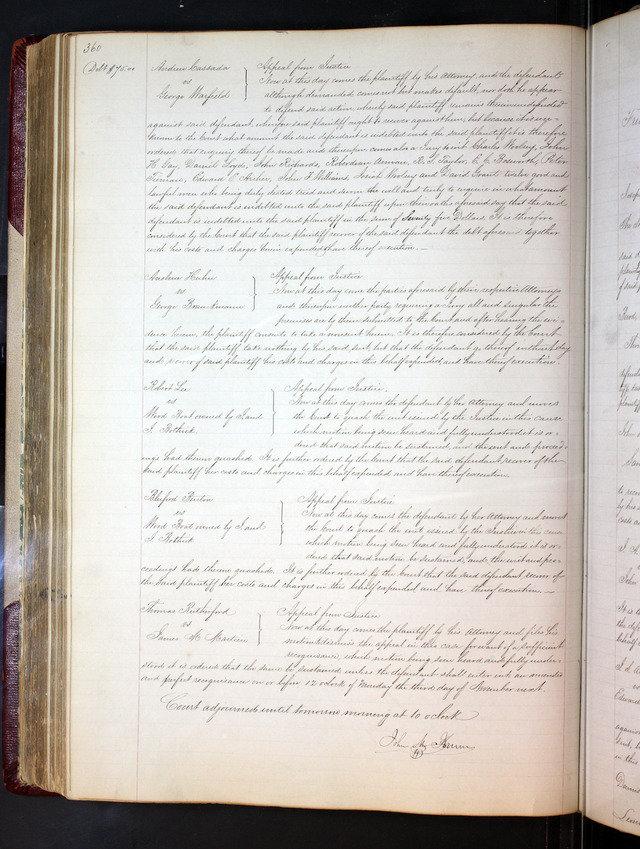 360
Debt $75.00
Andrew Cassada
vs
George Warfield
Appeal from Justice
Now at this day comes the plaintiff by his Attorney, and the defendant
although demanded, comes not but makes default, nor doth he appear
to defend said action, whereby said plaintiff remains therein undefended
against said defendant, wherefore said plaintiff ought to recover against him, but because it is un-
known to the Court what amount the said defendant is indebted unto the said plaintiff it is therefore
ordered that inquiry thereof be made and thereupon comes also a Jury to wit Charles Wooley, John
H. Day, Daniel Loyd, John Richards, Taylor, E. C. Peter
Edward C. Archer, John F Williams, Josiah Wooley and David twelve good and
lawful men who being duly elected tried and sworn the well and truly to inquire in what amount
the said defendant is indebted unto the said plaintiff upon their oaths aforesaid say that the said
defendant is indebted unto the said plaintiff in the sum of Seventy five Dollars. It is therefore
considered by the Court that the said plaintiff recover of the said defendant the debt aforesaid together
with his costs and charges herein expended & have thereof execution.
vs
George
Appeal from Justice
Now at this day come the parties aforesaid by their respective Attorneys
and thereupon neither party requiring a Jury all and singular the
premises are by them submitted to the Court and after hearing the evi-
dence herein, the plaintiff consents to take a nonsuit herein. It is therefore considered by the Court
that the said plaintiff take nothing by his said suit but that the defendant go thereof without day
and recover of said plaintiff his costs and charges in this behalf expended and have thereof execution.
Robert Lee
vs
Wood Boat owned by J. and
J. Pothied
Appeal from Justice
Now at this day comes the defendant by his Attorney and moves
the Court to quash the writ issued by the Justice in this cause
which motion being seen heard and fully understood it is or-
dered that said motion be sustained, and the writ and proceed-
ings had therein quashed. It is further ordered by the Court that the said defendant recover of the
said plaintiff his costs and charges in this behalf expended and have thereof execution.
Bluford Benton
vs
Wood Boat owned by J. and
J. Pothied
Appeal from Justice
Now at this day comes the defendant by his Attorney and moves
the Court to quash the writ issued by the Justice in this cause
which motion being seen heard and fully understood it is or-
dered that said motion be sustained, and the writ and pro-
ceedings had therein quashed. It is further ordered by the Court that the said defendant recover of
the said plaintiff his costs and charges in this behalf expended and have thereof execution.
Thomas Rutherford
vs
James M. Martien
Appeal from Justice
Now at this day comes the plaintiff by his Attorney and files his
motion to dismiss the appeal in this case for want of a sufficient
recognizance, which motion being seen heard and fully under-
stood it is ordered that the same be sustained unless the defendant shall enter into an amended
and perfect recognizance on or before 12 oclock of Monday the third day of November next.
Court adjourned until tomorrow morning at 10 oclock
John